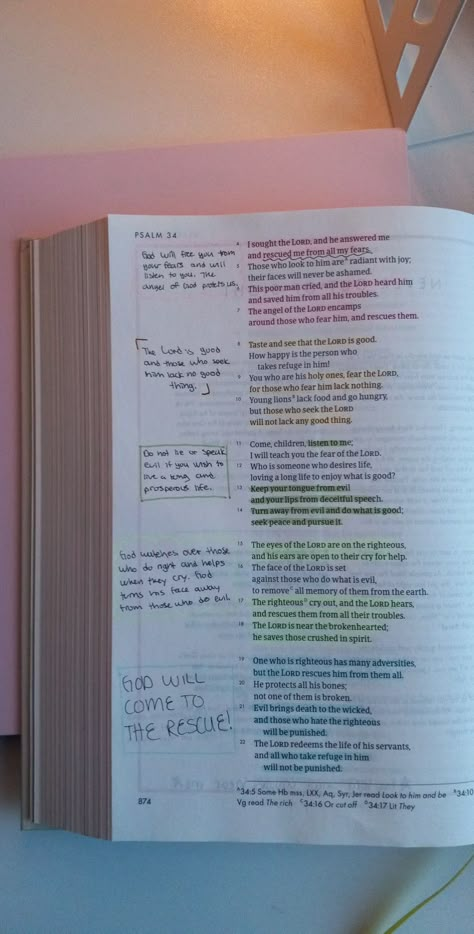 PSALM 34
God will free you from
your fears and will
listen to you. The
angel of God protects us.
4 I sought the LORD, and he answered me
and rescued me from all my fears.
5 Those who look to him are ᴬ radiant with joy;
their faces will never be ashamed.
6 This poor man cried, and the LORD heard him
and saved him from all his troubles.
7 The angel of the LORD encamps
around those who fear him, and rescues them.
The Lord is good
and those who seek
him lack no good
thing.
8 Taste and see that the LORD is good.
How happy is the person who
takes refuge in him!
9 You who are his holy ones, fear the LORD,
for those who fear him lack nothing.
10 Young lions ᴮ lack food and go hungry,
but those who seek the LORD
will not lack any good thing.
Do not lie or speak
evil if you wish to
live a long and
prosperous life.
11 Come, children, listen to me;
I will teach you the fear of the LORD.
12 Who is someone who desires life,
loving a long life to enjoy what is good?
13 Keep your tongue from evil
and your lips from deceitful speech.
14 Turn away from evil and do what is good;
seek peace and pursue it.
God watches over those
who do right and helps
when they cry. God
turns his face away
from those who do evil.
15 The eyes of the LORD are on the righteous,
and his ears are open to their cry for help.
16 The face of the LORD is set
against those who do what is evil,
to remove ᶜ all memory of them from the earth.
17 The righteous ᴰ cry out, and the LORD hears,
and rescues them from all their troubles.
18 The LORD is near the brokenhearted;
he saves those crushed in spirit.
GOD WILL
COME TO
THE RESCUE!
19 One who is righteous has many adversities,
but the LORD rescues him from them all.
20 He protects all his bones;
not one of them is broken.
21 Evil brings death to the wicked,
and those who hate the righteous
will be punished.
22 The LORD redeems the life of his servants,
and all who take refuge in him
will not be punished.
874
ᴬ34:5 Some Hb mss, LXX, Aq, Syr, Jer read Look to him and be ᴮ34:10
Vg read The rich ᶜ34:16 Or cut off ᴰ34:17 Lit They